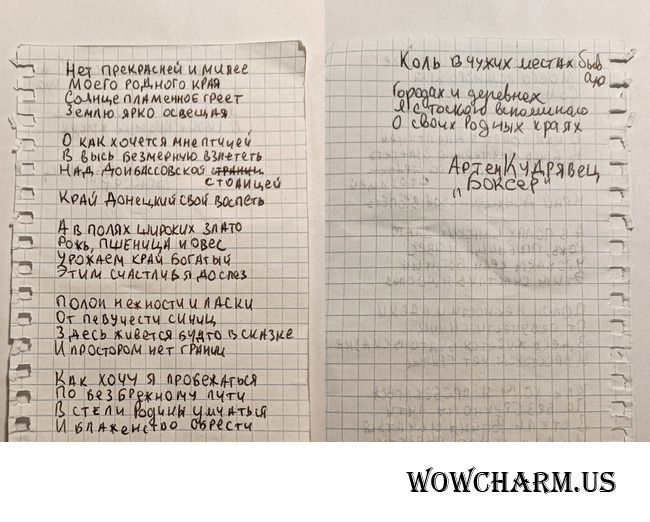 Нет прекрасней и милее
Моего родного края
Солнце пламенное греет
Землю ярко освещая
О как хочется мне птицей
В высь безмерную взлететь
Над Донбассовской страниц
столицей
Край Донецкий свой воспеть
А в полях широких злато
Рожь, пшеница и овес
Урожаем край богатый
Этим счастлив я до слез
Полон нежности и ласки
От певучести синиц
Здесь живется будто в сказке
И простором нет границ
Как хочу я пробежаться
По безбрежному пути
В степи Родины умчаться
И блаженство обрести
Коль в чужих местах быв
аю
Городах и деревнях
Я с тоскою вспоминаю
О своих родных краях
Артем Кудрявец
"Боксер"
WOWCHARM.US